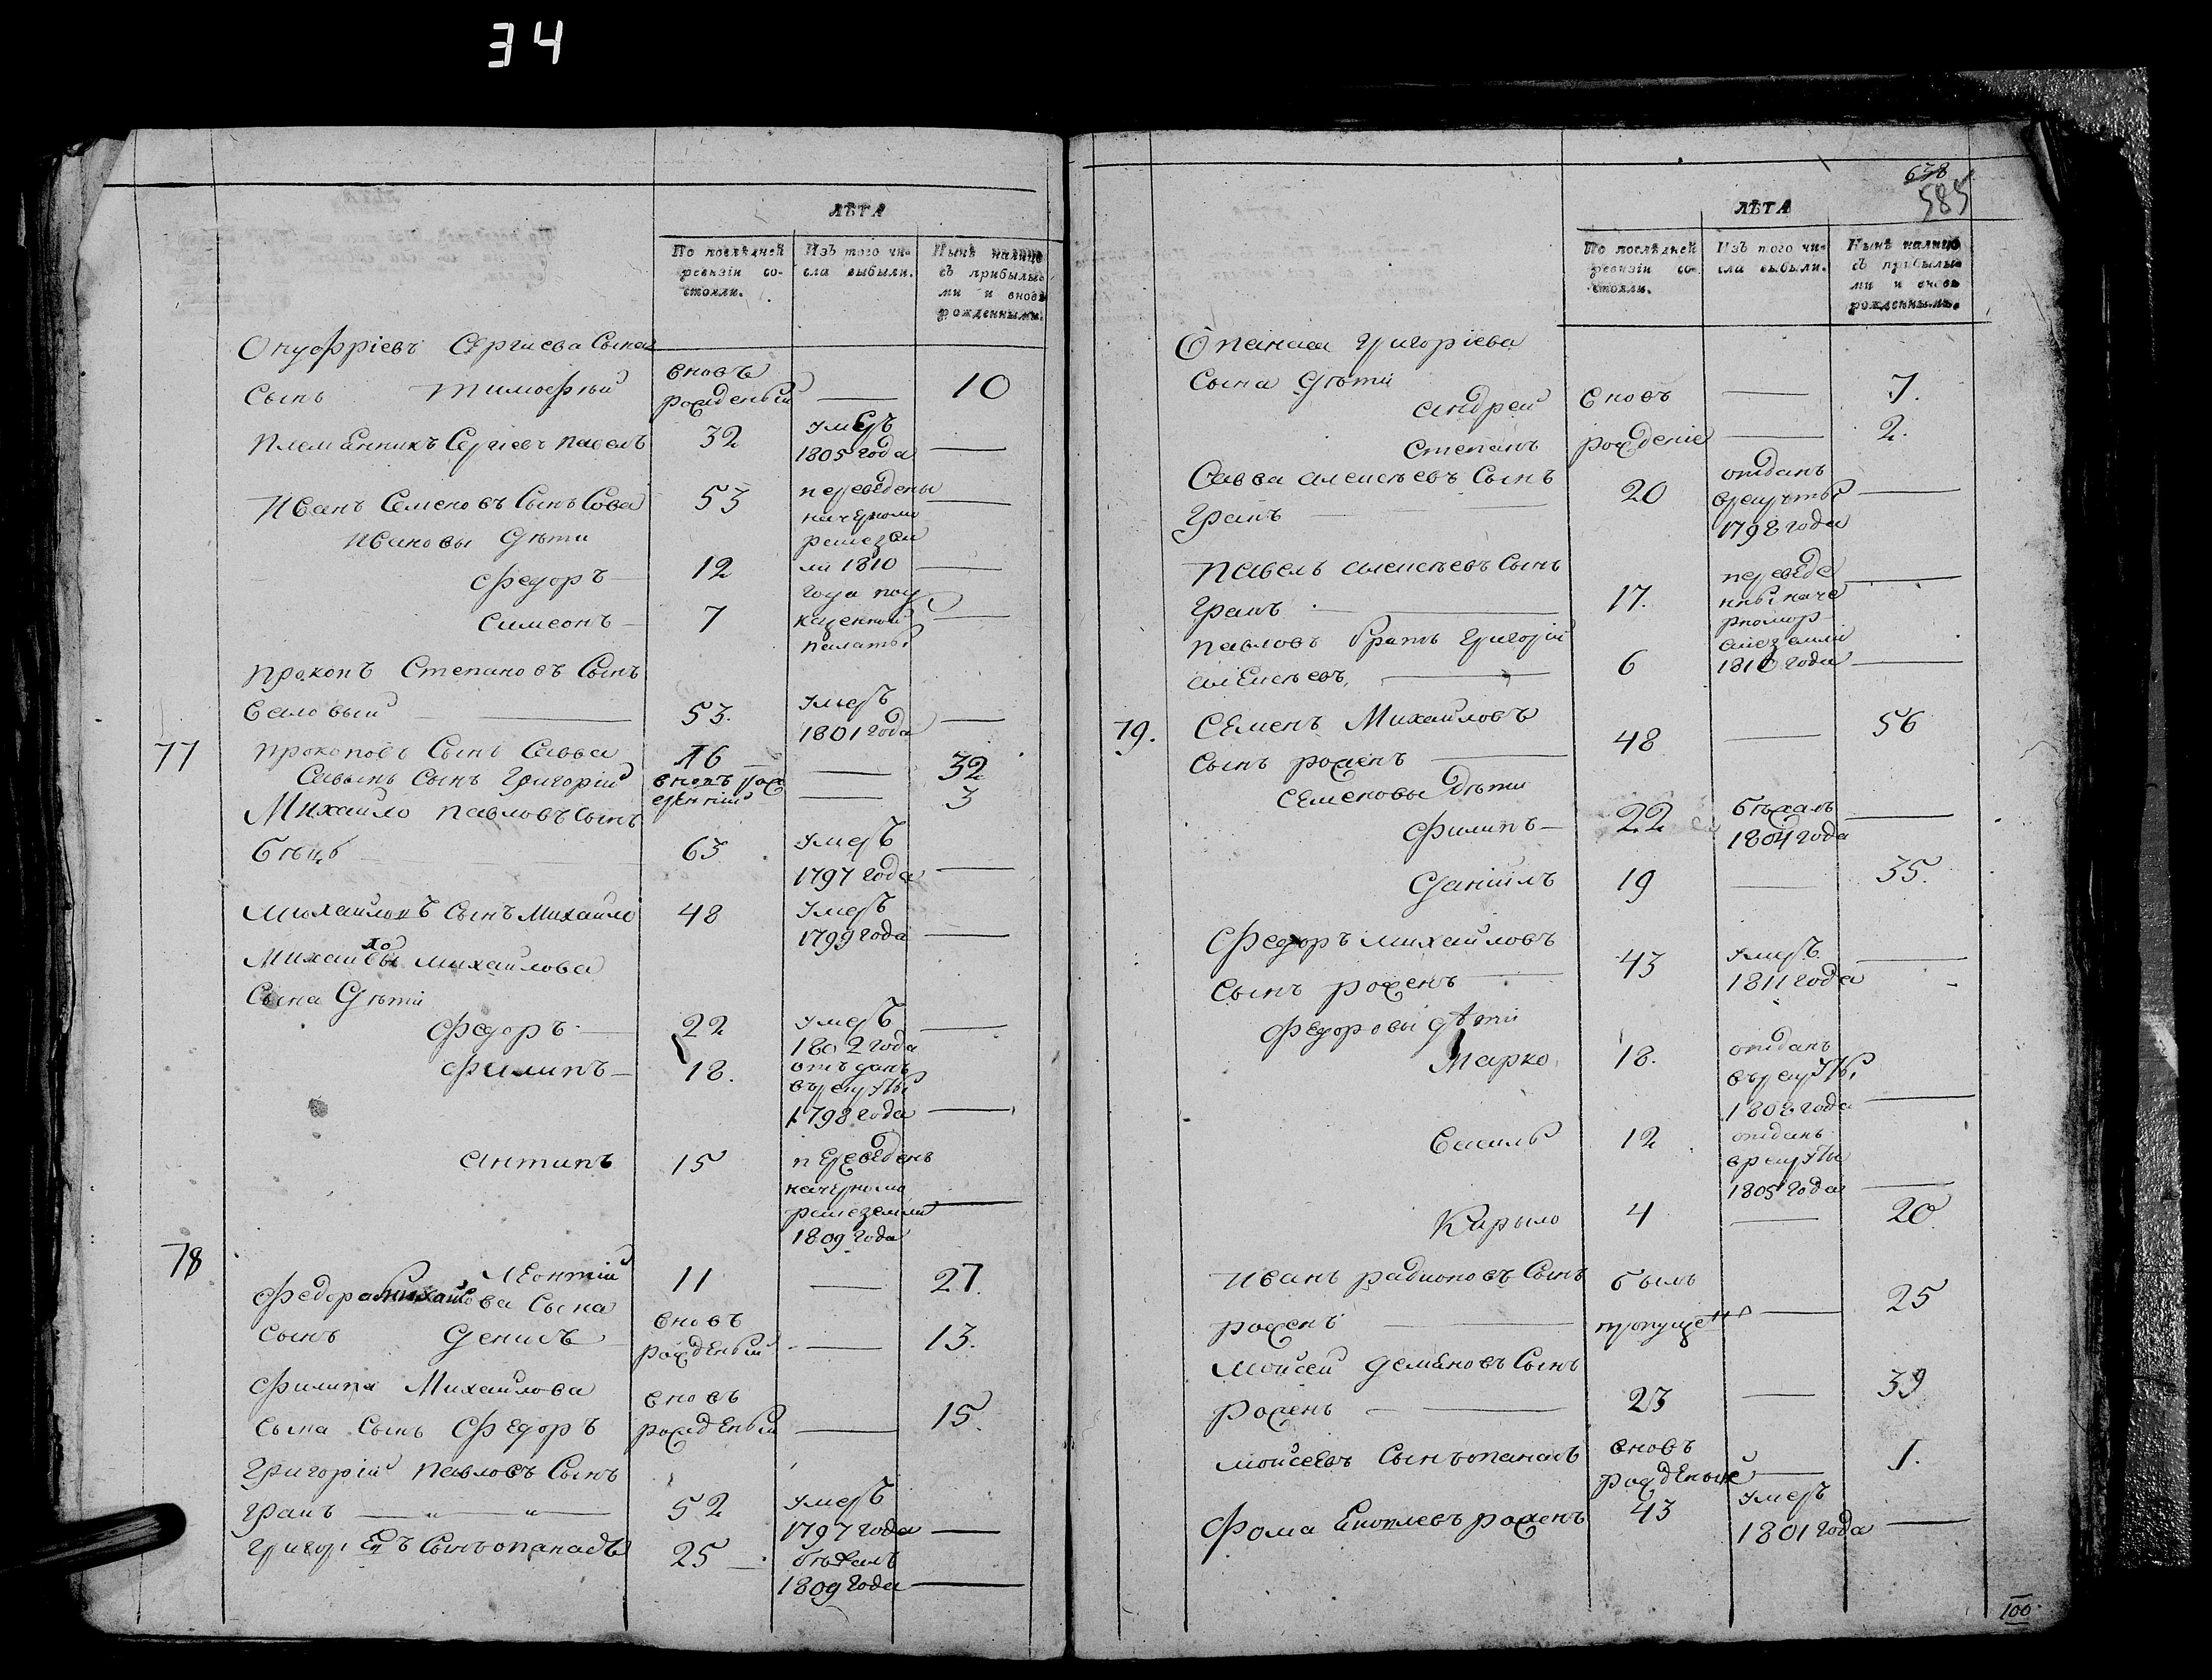 34
ЛѢТА
По послѣдней ревизіи состояли.
Изъ того числа выбыли.
Нынѣ налицо съ прибылыми и вновь рожденными.
Онуфріевъ Сергиева Сына
Сынъ Тимофѣй вновь рожденый — 10
Племянникъ Сергіевъ Павелъ 32 умеръ 1805 года —
Иванъ Семеновъ Сынъ Сова 53 переведены —
Ивановы Дѣти начерномо
Федоръ 12 рскезем ли 1810 —
Симеонъ 7 года по казенной —
палаты
Прокопъ Степановъ Сынъ
53. умеръ 1801 года —
77 Прокоповъ Сынъ Савва 16 — 32
Савынъ Сынъ Григорій вновь рож денній — 3
Михайло Павловъ Сынъ
63 умеръ 1797 года —
Михайловъ Сынъ Михайло 48 умеръ 1799 года —
Михайловы Михайлова
Сына Дѣти
Федоръ — 22 умеръ 1802 года —
Филипъ — 18. отъданъ врекруты 1798 года —
Антипъ 15 переведенъ начерномо рскеземли 1809 года —
78 Леонтій 11 — 27.
Федора Михайлова Сына
Сынъ Денисъ вновь рожденый — 13.
Филипа Михайлова
Сына Сынъ Федоръ вновь рожденый — 15.
Григорій Павловъ Сынъ
Грапъ — 52 умеръ 1797 года —
Григоріевъ Сынъ Опанасъ 25 — бѣжалъ 1809 года —
678
585
ЛѢТА
По послѣдней ревизіи состояли.
Изъ того числа выбыли.
Нынѣ налицо съ прибылыми и вновь рожденными.
Опанаса Григоріева
Сына Дѣти
Андрей вновь — 7.
Степанъ рожденіе — 2.
Савва Алексѣевъ Сынъ
Грапъ — 20 отданъ врекруты 1798 года —
Павелъ Алексѣевъ Сынъ
Грапъ — 17. переведе нны наче —
Павловъ Братъ Григорій рномор
Алексѣевъ — 6 скеземли 1810 года —
79. Семенъ Михайловъ
Сынъ роженъ — 48 — 56
Семеновы Дѣти
Филипъ — 22 бѣжалъ 1804 года —
Даніилъ 19 — 35.
Федоръ Михайловъ
Сынъ роженъ — 43 умеръ 1811 года —
Федоровы дѣти
Марко 18. отданъ врекруты 1808 года —
Василь 12 отданъ врекруты 1805 года —
Кирыло 4 — 20
Иванъ Радионовъ Сынъ былъ
роженъ — пропущен — 25
Мойсей Деменовъ Сынъ
роженъ — 23 — 39
Мойсеевъ Сынъ Опанасъ вновь рожденые — 1.
Фома роженъ 43 умеръ 1801 года —
100